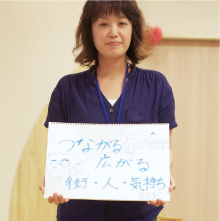 つながる
この 広がる
街・人・気持ち